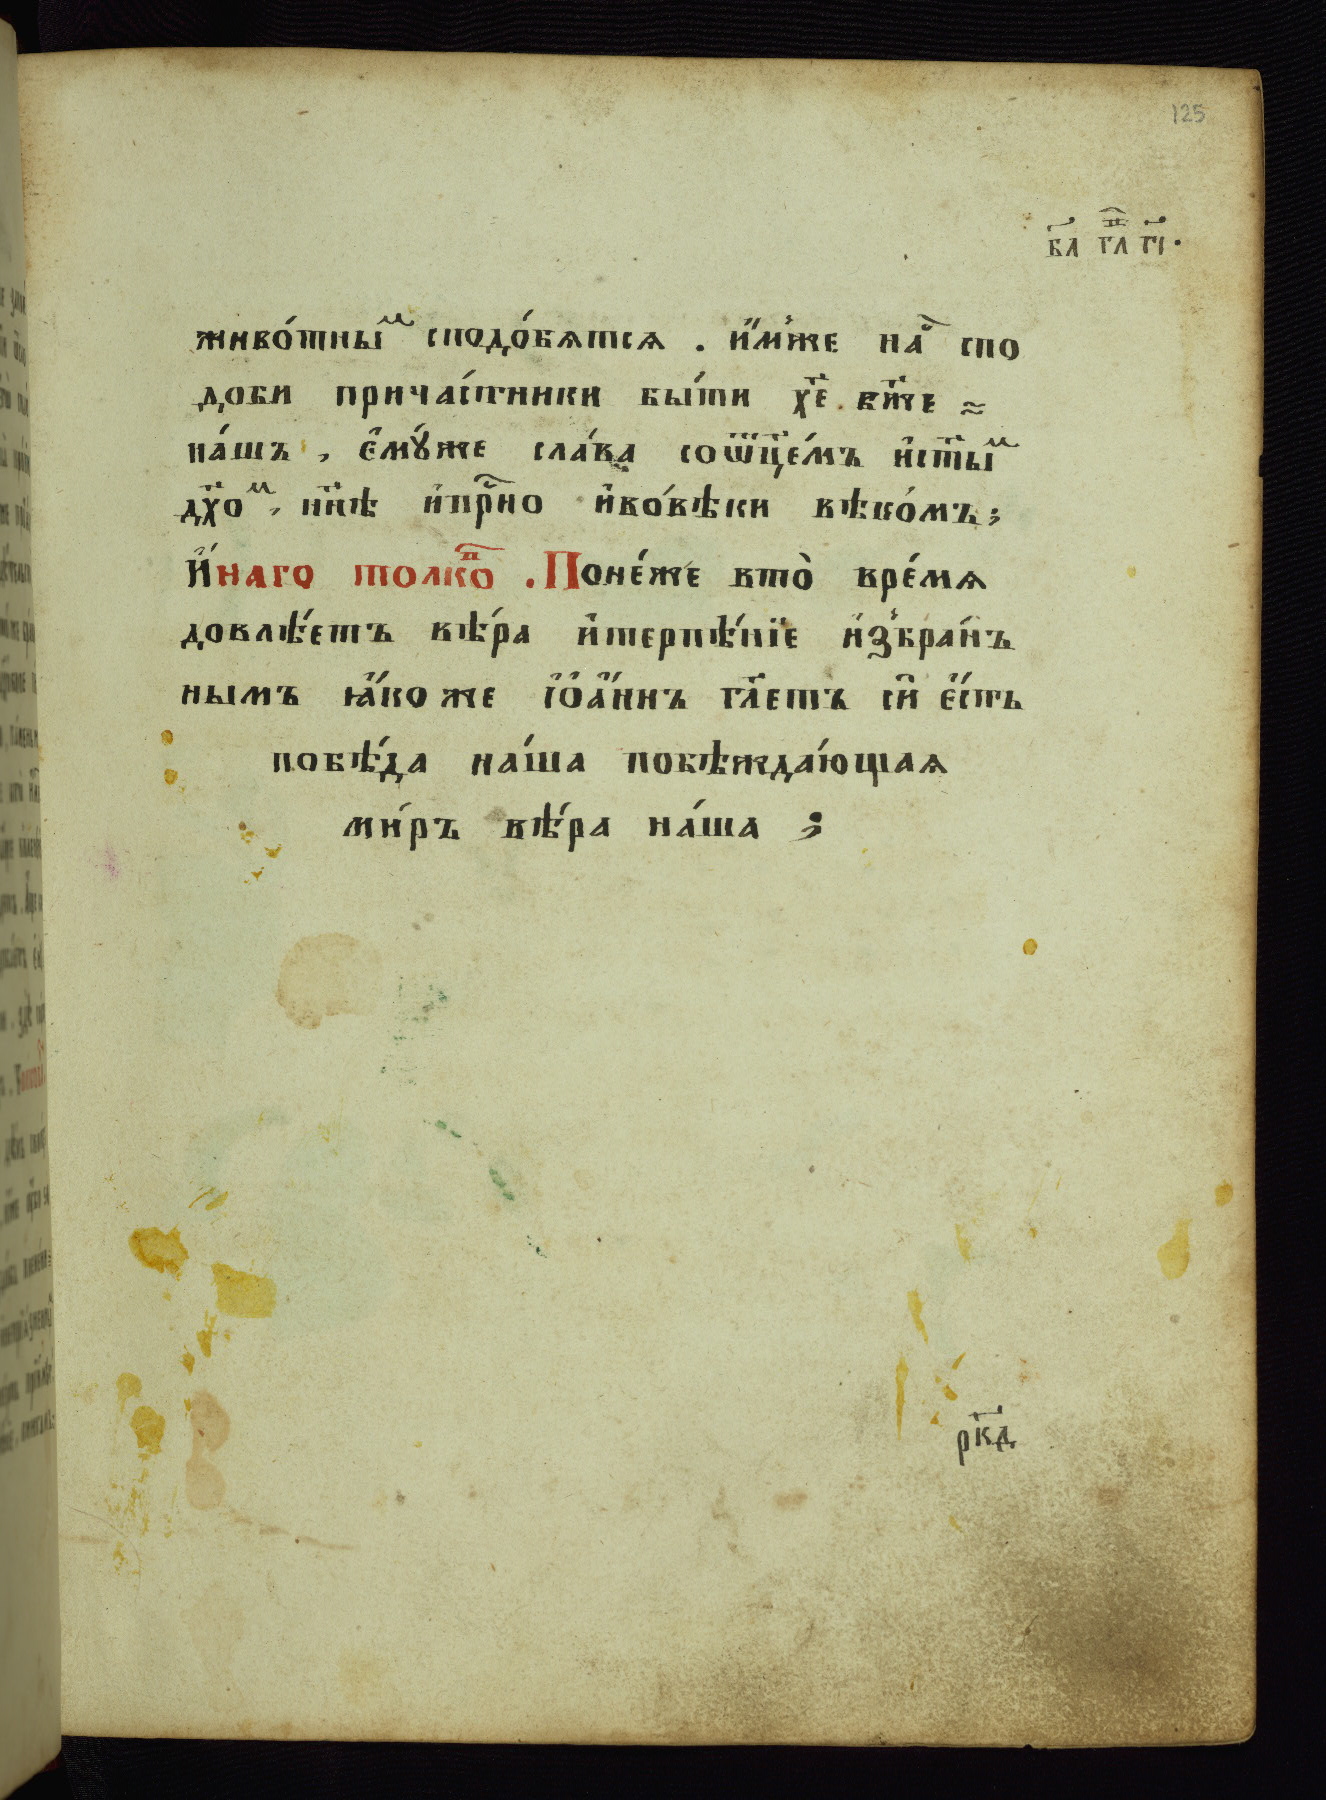 125
б҃л гл҃ г҃і.
живо́тныⷨ сподо́бѧтсѧ . и҆́мже на́с спо
доби прича́стники бы́ти хⷭ҇е бж҃е
на́шъ , є҆мꙋ́же сла́ва соѿц҃е́мъ и҆ст҃ыⷨ
дх҃оⷨ , нн҃ѣ и҆прⷭ҇но и҆во́вѣки вѣко́мъ ;
И҆́наго толкоⷡ . Поне́же вто̀ вре́мѧ
довлѣ́етъ вѣ́ра и҆терпѣ́нїе и҆збра́нъ
нымъ ꙗ҆́коже і҆ѡа́ннъ гл҃етъ сі́и є҆́сть
побѣ́да на́ша побѣжда́ющаѧ
ми́ръ вѣ́ра на́ша ;
рк҃д